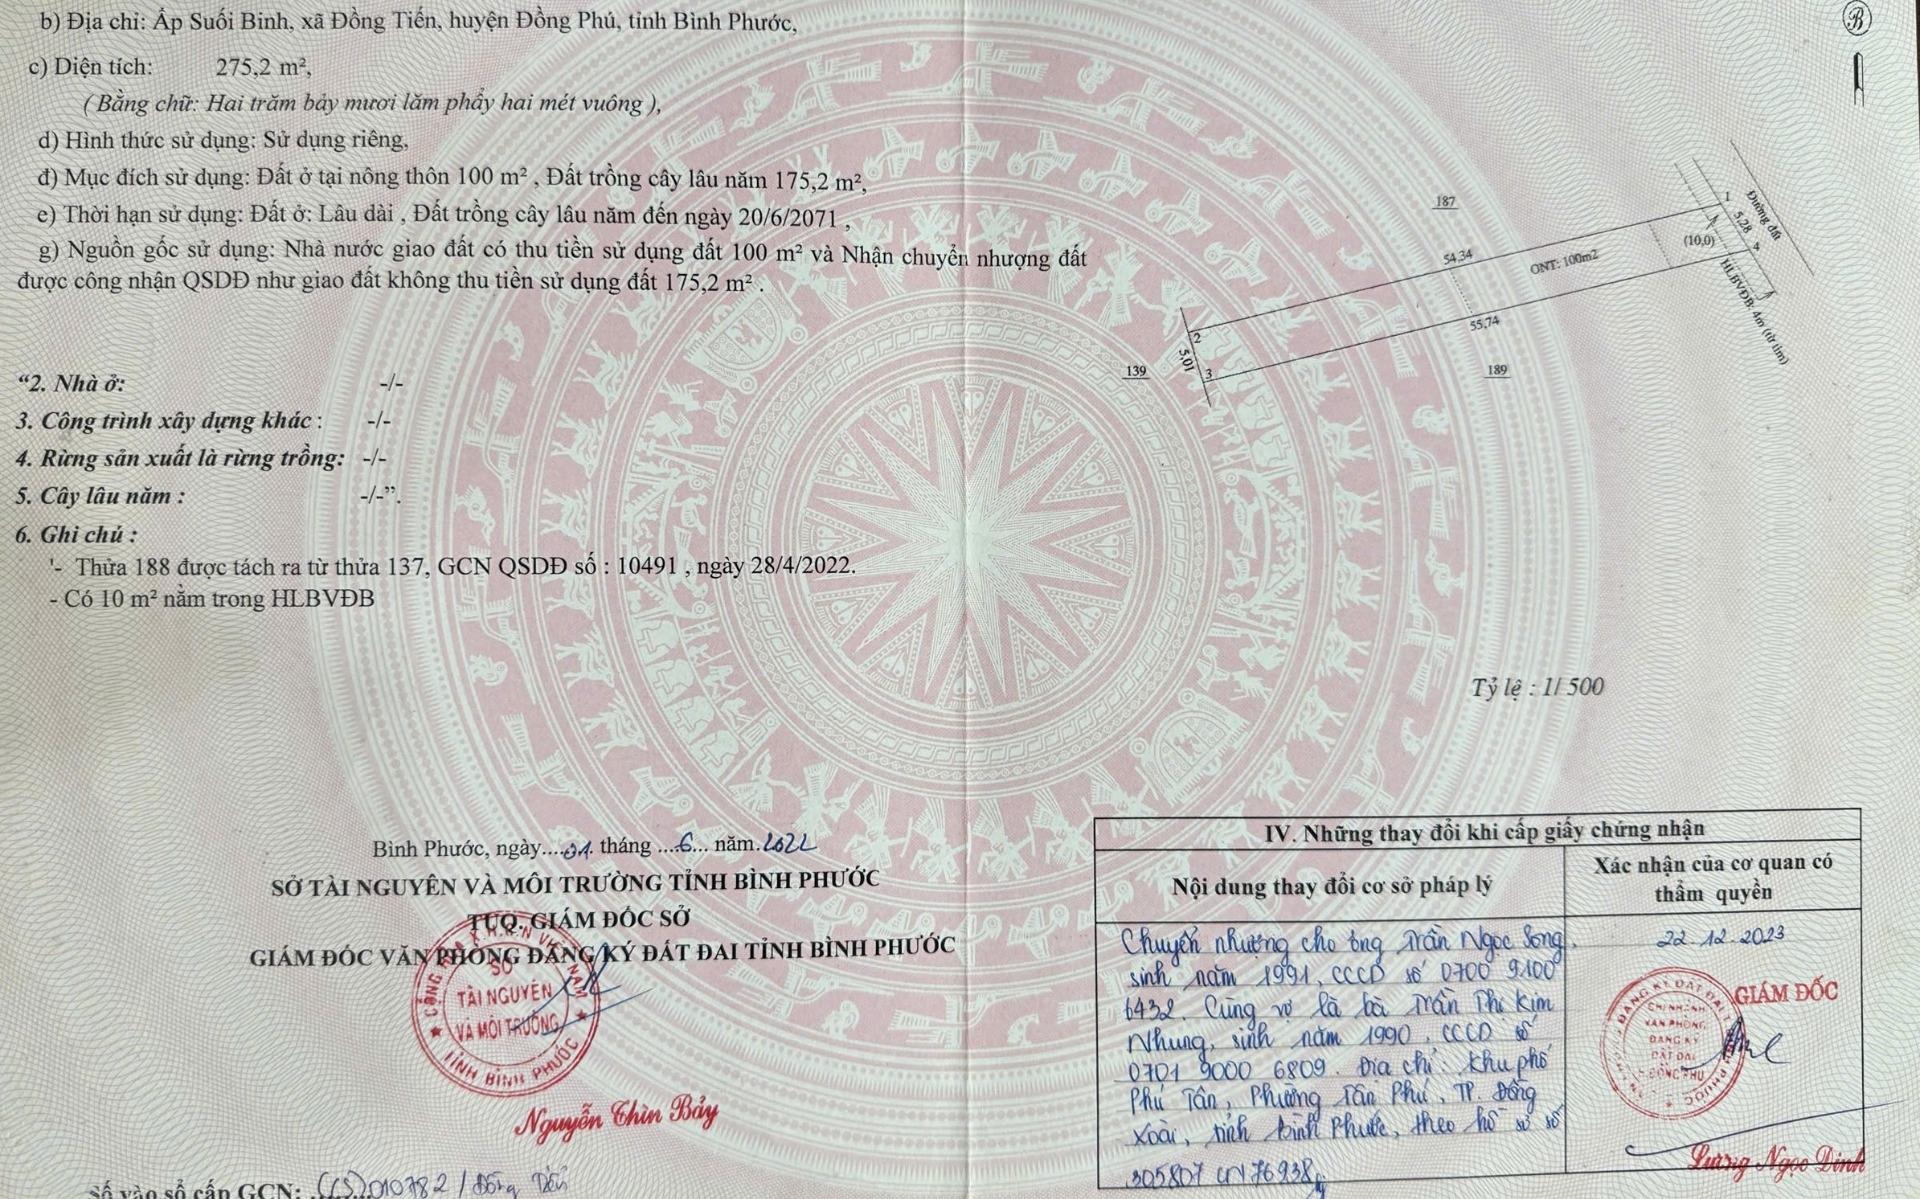 b) Địa chỉ: Ấp Suối Binh, xã Đồng Tiến, huyện Đồng Phú, tỉnh Bình Phước,
c) Diện tích: 275,2 m²,
( Bằng chữ: Hai trăm bảy mươi lăm phẩy hai mét vuông ),
d) Hình thức sử dụng: Sử dụng riêng,
đ) Mục đích sử dụng: Đất ở tại nông thôn 100 m² , Đất trồng cây lâu năm 175,2 m²,
e) Thời hạn sử dụng: Đất ở: Lâu dài , Đất trồng cây lâu năm đến ngày 20/6/2071 ,
g) Nguồn gốc sử dụng: Nhà nước giao đất có thu tiền sử dụng đất 100 m² và Nhận chuyển nhượng đất
được công nhận QSDĐ như giao đất không thu tiền sử dụng đất 175,2 m² .
“2. Nhà ở: -/-
3. Công trình xây dựng khác : -/-
4. Rừng sản xuất là rừng trồng: -/-
5. Cây lâu năm : -/-”.
6. Ghi chú :
'- Thửa 188 được tách ra từ thửa 137, GCN QSDĐ số : 10491 , ngày 28/4/2022.
- Có 10 m² nằm trong HLBVĐB
B
187
1
5,28
4
Đường đất
(10,0)
54,34
ONT: 100m2
HLBVĐB: 4m (từ tim)
55,74
2
5,01
3
139
189
Tỷ lệ : 1/ 500
Bình Phước, ngày....01. tháng ....6... năm.2022
SỞ TÀI NGUYÊN VÀ MÔI TRƯỜNG TỈNH BÌNH PHƯỚC
TUQ. GIÁM ĐỐC SỞ
GIÁM ĐỐC VĂN PHÒNG ĐĂNG KÝ ĐẤT ĐAI TỈNH BÌNH PHƯỚC
SỞ
TÀI NGUYÊN
VÀ MÔI TRƯỜNG
TỈNH BÌNH PHƯỚC
Nguyễn Thìn Bảy
Số vào sổ cấp GCN: (CS)010782 / Đồng Tiến
IV. Những thay đổi khi cấp giấy chứng nhận
Nội dung thay đổi cơ sở pháp lý
Xác nhận của cơ quan có
thẩm quyền
Chuyển nhượng cho ông Trần Ngọc Song,
sinh năm 1991, CCCD số 0700 9100
6432. Cùng vợ là bà Trần Thị Kim
Nhung, sinh năm 1990, CCCD số
0701 9000 6809. Địa chỉ: Khu phố
Phú Tân, Phường Tân Phú, TP. Đồng
Xoài, tỉnh Bình Phước, theo hồ sơ số
305807 CN 76938
22.12.2023
GIÁM ĐỐC
CHI NHÁNH
VĂN PHÒNG
ĐĂNG KÝ
ĐẤT ĐAI
ĐỒNG PHÚ
Lương Ngọc Dinh